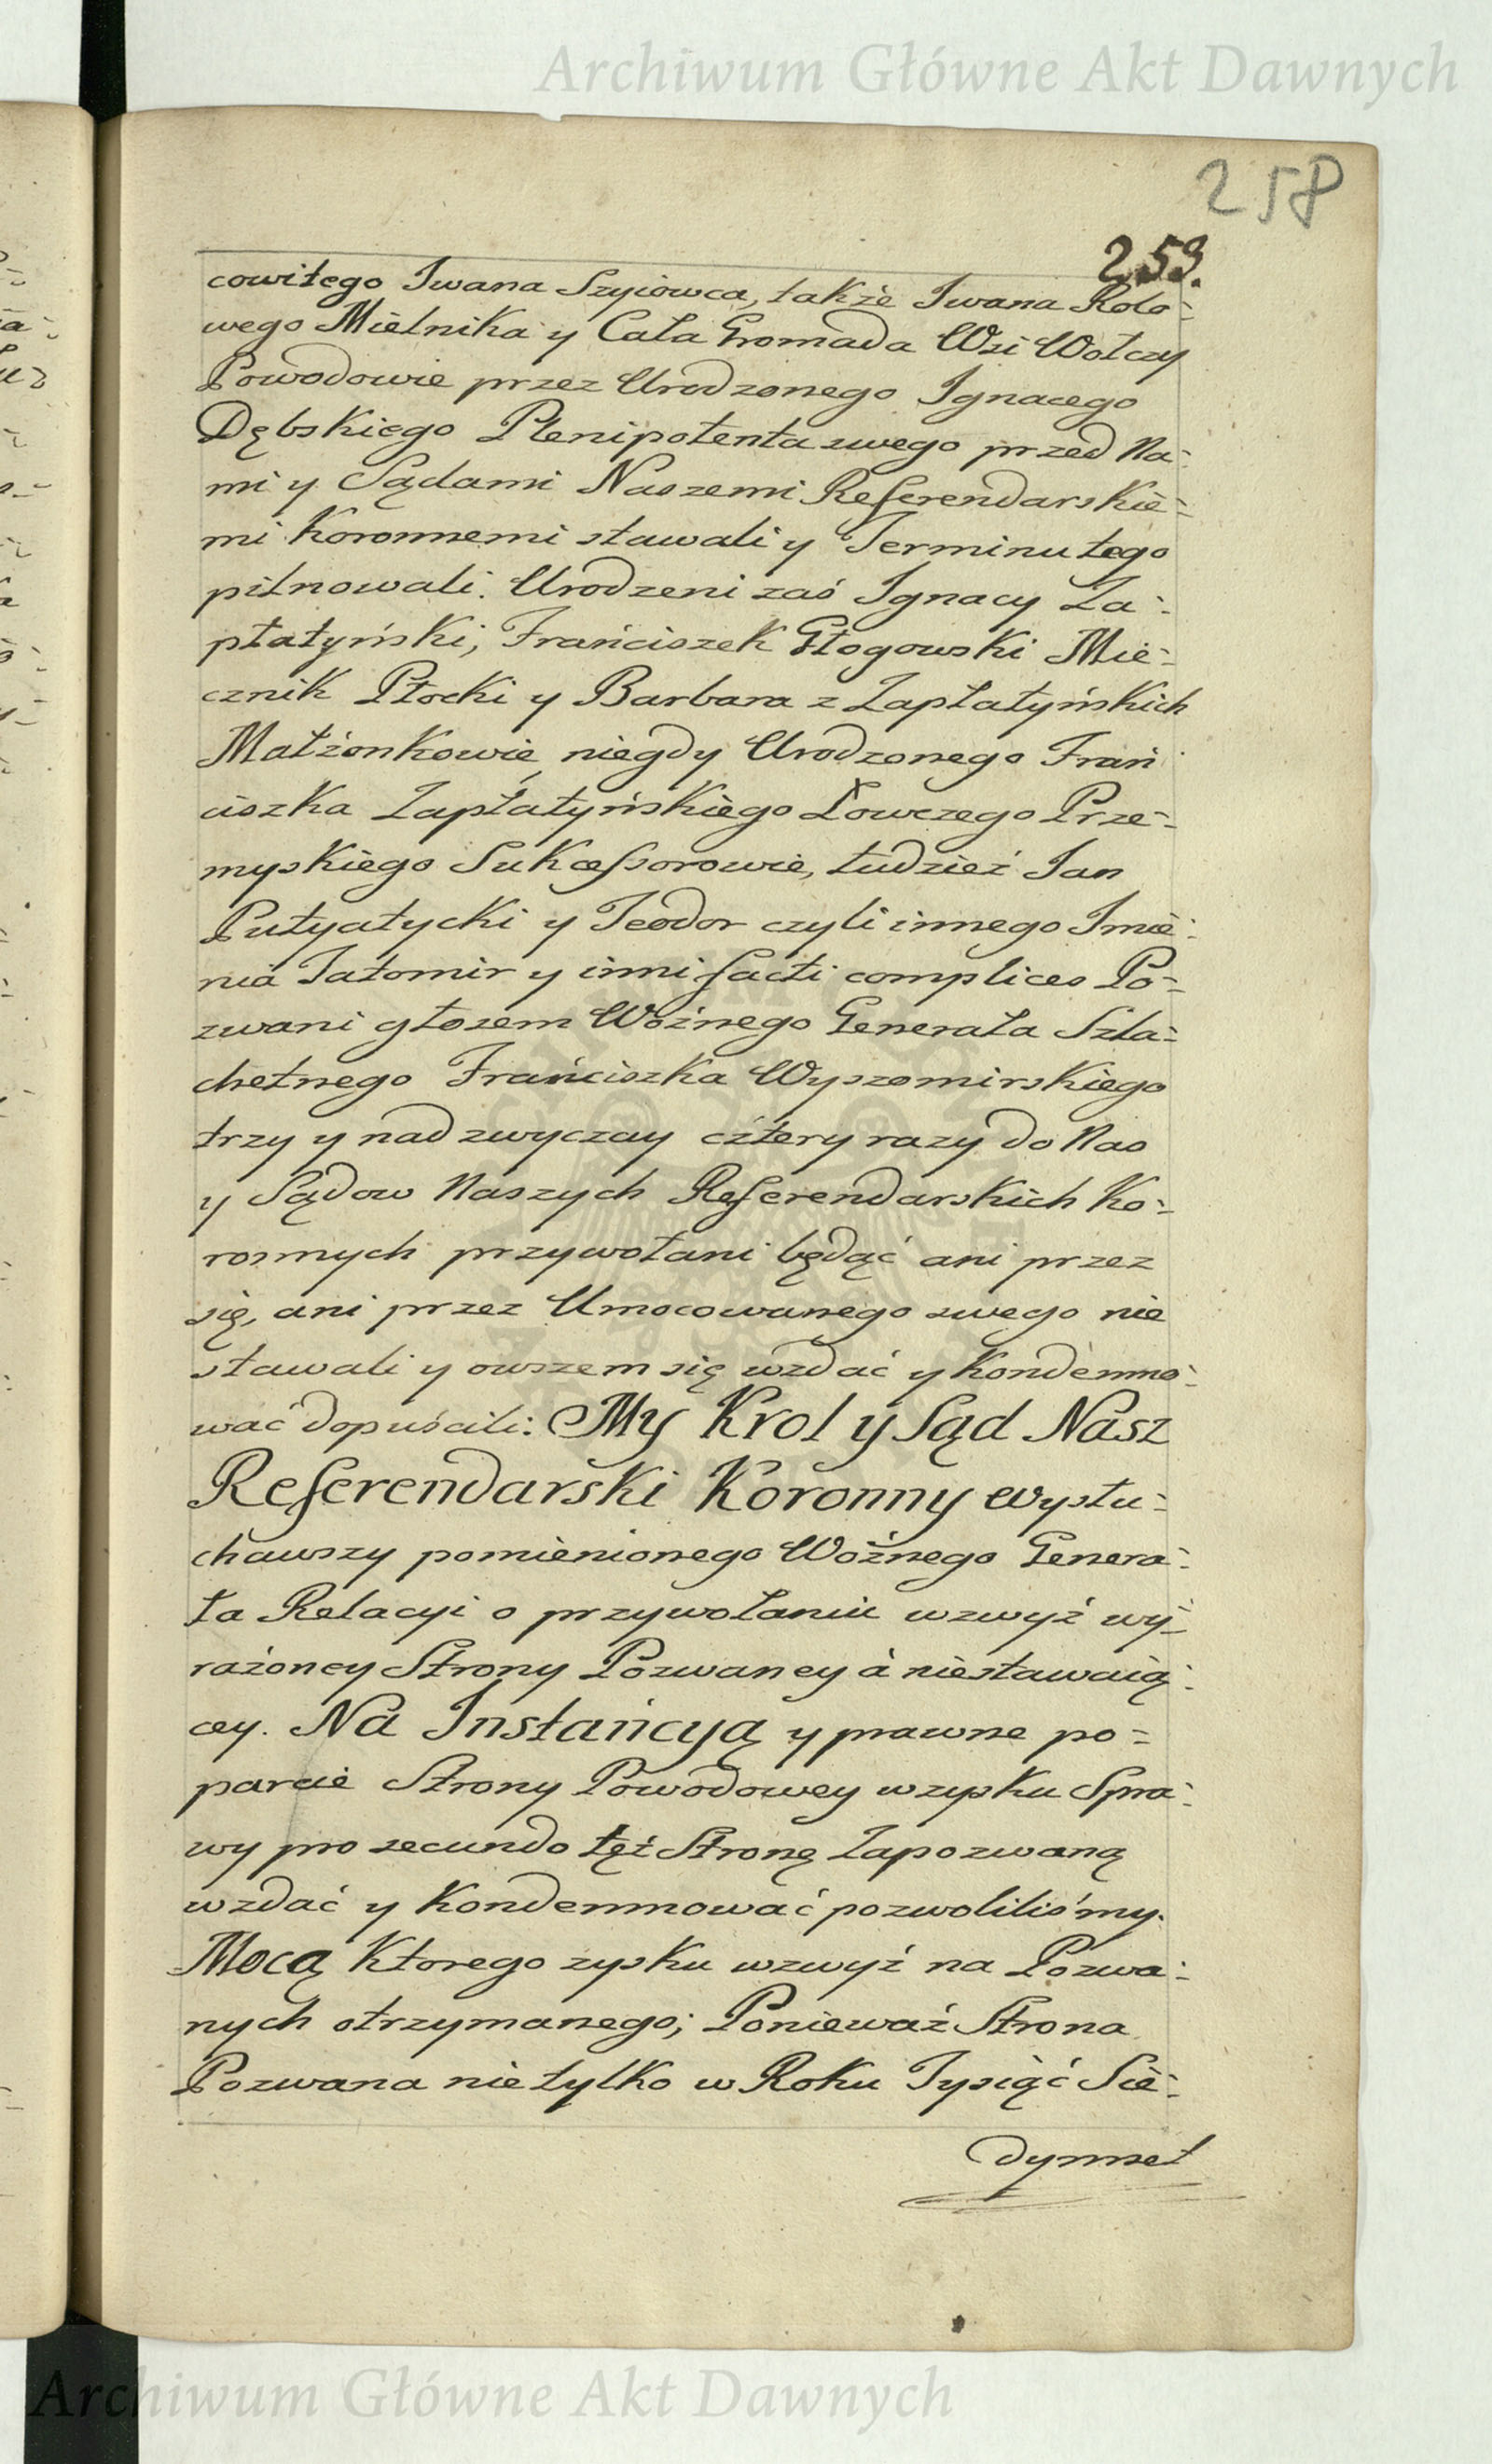 Archiwum Główne Akt Dawnych
258
259.
cowitego Iwana Szyiowca, także Iwana Rolo-
wego Mielnika y Cała Gromada Wsi Wołczy
Powodowie przez Urodzonego Ignacego
Dębskiego Plenipotenta swego przed Na-
mi y Sądami Naszemi Referendarskie-
mi Koronnemi stawali y Terminu tego
pilnowali. Urodzeni zaś Ignacy Za-
płatyński, Franciszek Głogowski Mie-
cznik Płocki y Barbara z Zapłatyńskich
Małżonkowie, niegdy Urodzonego Fran
ciszka Zapłatyńskiego Łowczego Prze-
myskiego Sukcessorowie, tudzież Jan
Putyatycki y Teodor czyli innego Imie-
nia Jatomir y inni facti complices Po-
zwani głosem Woźnego Generała Szla-
chetnego Franciszka Wyszomirskiego
trzy y nad zwyczay cztery razy do Nas
y Sądow Naszych Referendarskich Ko-
ronnych przywołani będąć ani przez
się, ani przez Umocowanego swego nie
stawali y owszem się wzdać y kondemno-
wać dopuścili: My Krol y Sąd Nasz
Referendarski Koronny wysłu-
chawszy pomienionego Woźnego Genera-
ła Relacyi o przywołaniu wzwyż wy-
rażoney Strony Pozwaney à niestawaią-
cey. Na Instancyą y prawne po-
parcie Strony Powodowey wzysku Spra-
wy pro secundo tęż Stronę Zapozwaną
wzdać y Kondemnować pozwoliliśmy.
Mocą Ktorego zysku wzwyż na Pozwa-
nych otrzymanego; Ponieważ Strona
Pozwana nie tylko w Roku Tysiąć Sie-
dymset
Archiwum Główne Akt Dawnych